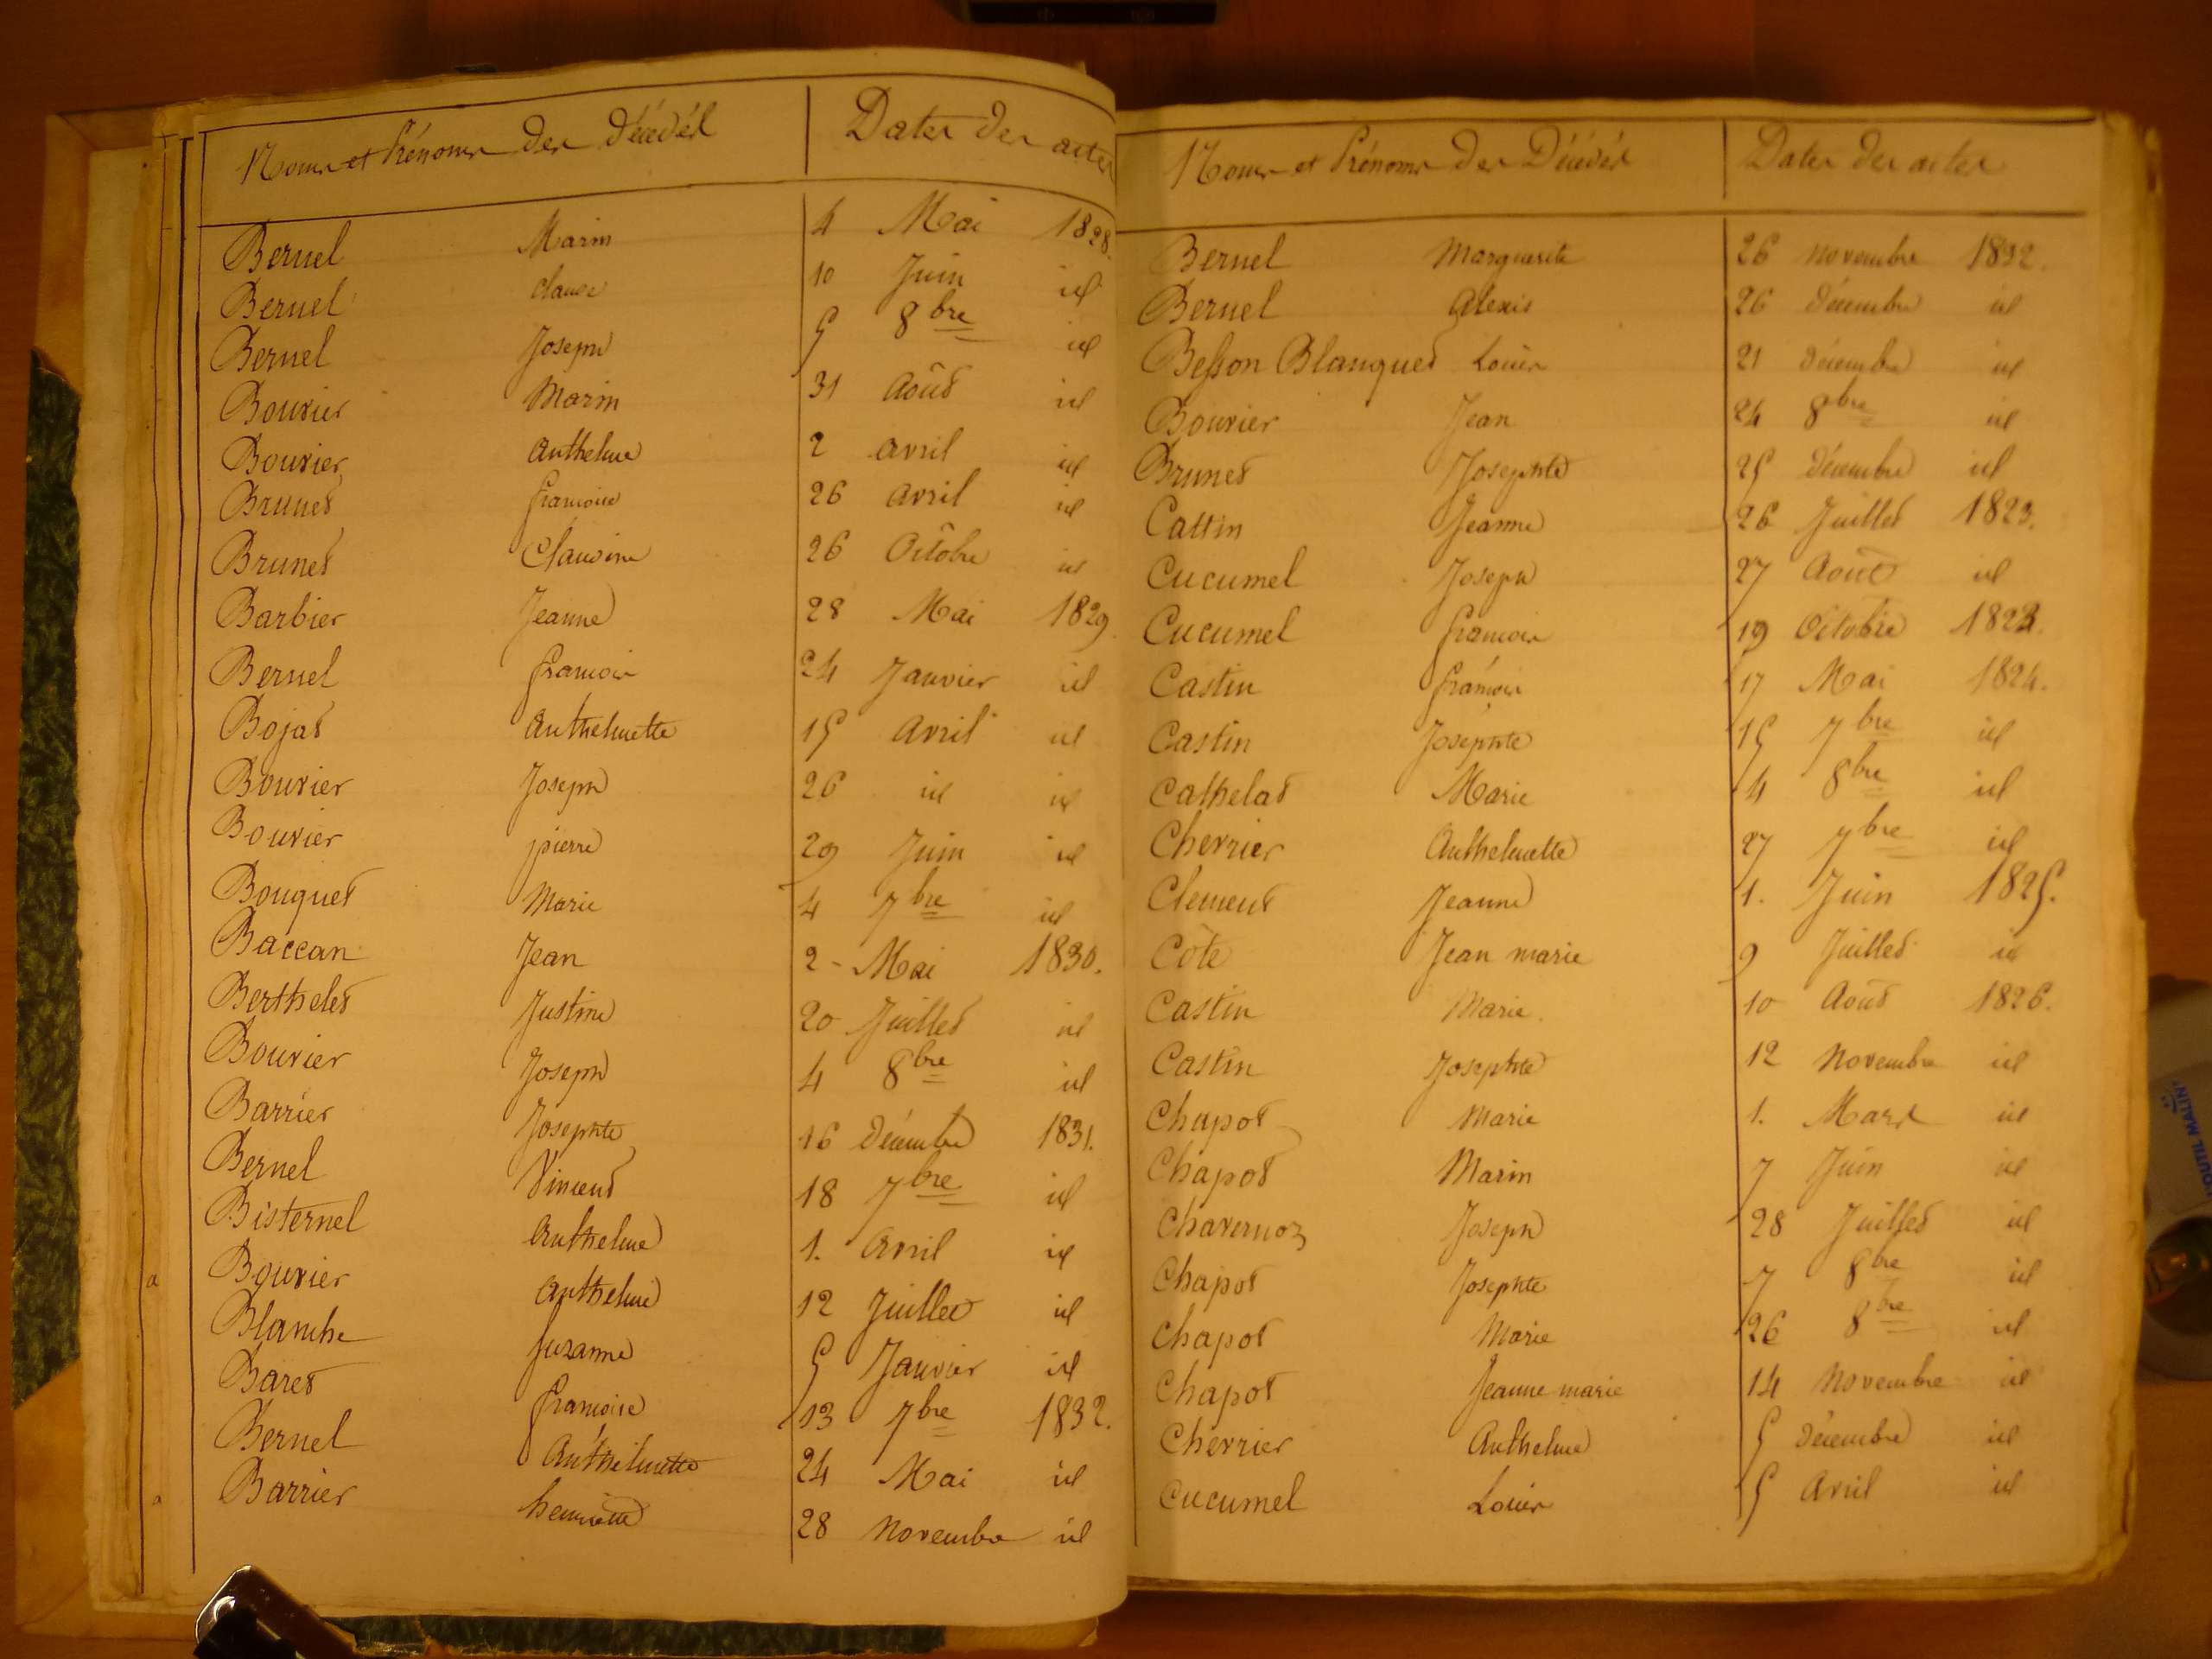 Noms et Prénoms des Décédés Dates des actes
Bernel Marin 4 Mai 1828.
Bernel claude 10 Juin id
Bernel Joseph 5 8bre id
Bouvier Marin 31 Août id
Bouvier Anthelme 2 avril id
Brunet françoise 26 avril id
Brunet Claudine 26 Octobre id
Barbier Jeanne 28 Mai 1829.
Bernel françois 24 Janvier id
Bojat Anthelmette 15 Avril id
Bouvier Joseph 26 id id
Bouvier pierre 29 Juin id
Bouquet Marie 4 7bre id
Baccan Jean 2 - Mai 1830.
Berthelet Justine 20 Juillet id
Bouvier Joseph 4 8bre id
Barrier Josephte 16 Décembre 1831.
Bernel Vincent 18 7bre id
Bisternel Anthelme 1. Avril id
Bouvier Anthelme 12 Juillet id
Blanche Suzanne 5 Janvier id
Baret françoise 13 7bre 1832.
Bernel Anthelmette 24 Mai id
Barrier henriette 28 Novembre id
Noms et Prénoms des Décédés Dates des actes
Bernel Marguerite 26 novembre 1832.
Bernel Alexis 26 décembre id
Besson Blanquet Louis 21 décembre id
Bouvier Jean 24 8bre id
Brunet Josephte 25 décembre id
Cattin Jeanne 26 Juillet 1823.
Cucumel Joseph 27 Août id
Cucumel françois 19 Octobre 1823.
Castin françois 17 Mai 1824.
Castin Josephte 15 7bre id
Cathelat Marie 4 8bre id
Chevrier Anthelmette 27 7bre id
Clement Jeanne 1. Juin 1825.
Côte Jean marie 9 Juillet id
Castin Marie. 10 Août 1826.
Castin Josephte 12 Novembre id
Chapot Marie 1. Mars id
Chapot Marin 7 Juin id
Chavernoz Joseph 28 Juillet id
Chapot Josephte 7 8bre id
Chapot Marie 26 8bre id
Chapot Jeanne marie 14 Novembre id
Chevrier Anthelme 5 décembre id
Cucumel Louis 5 Avril id